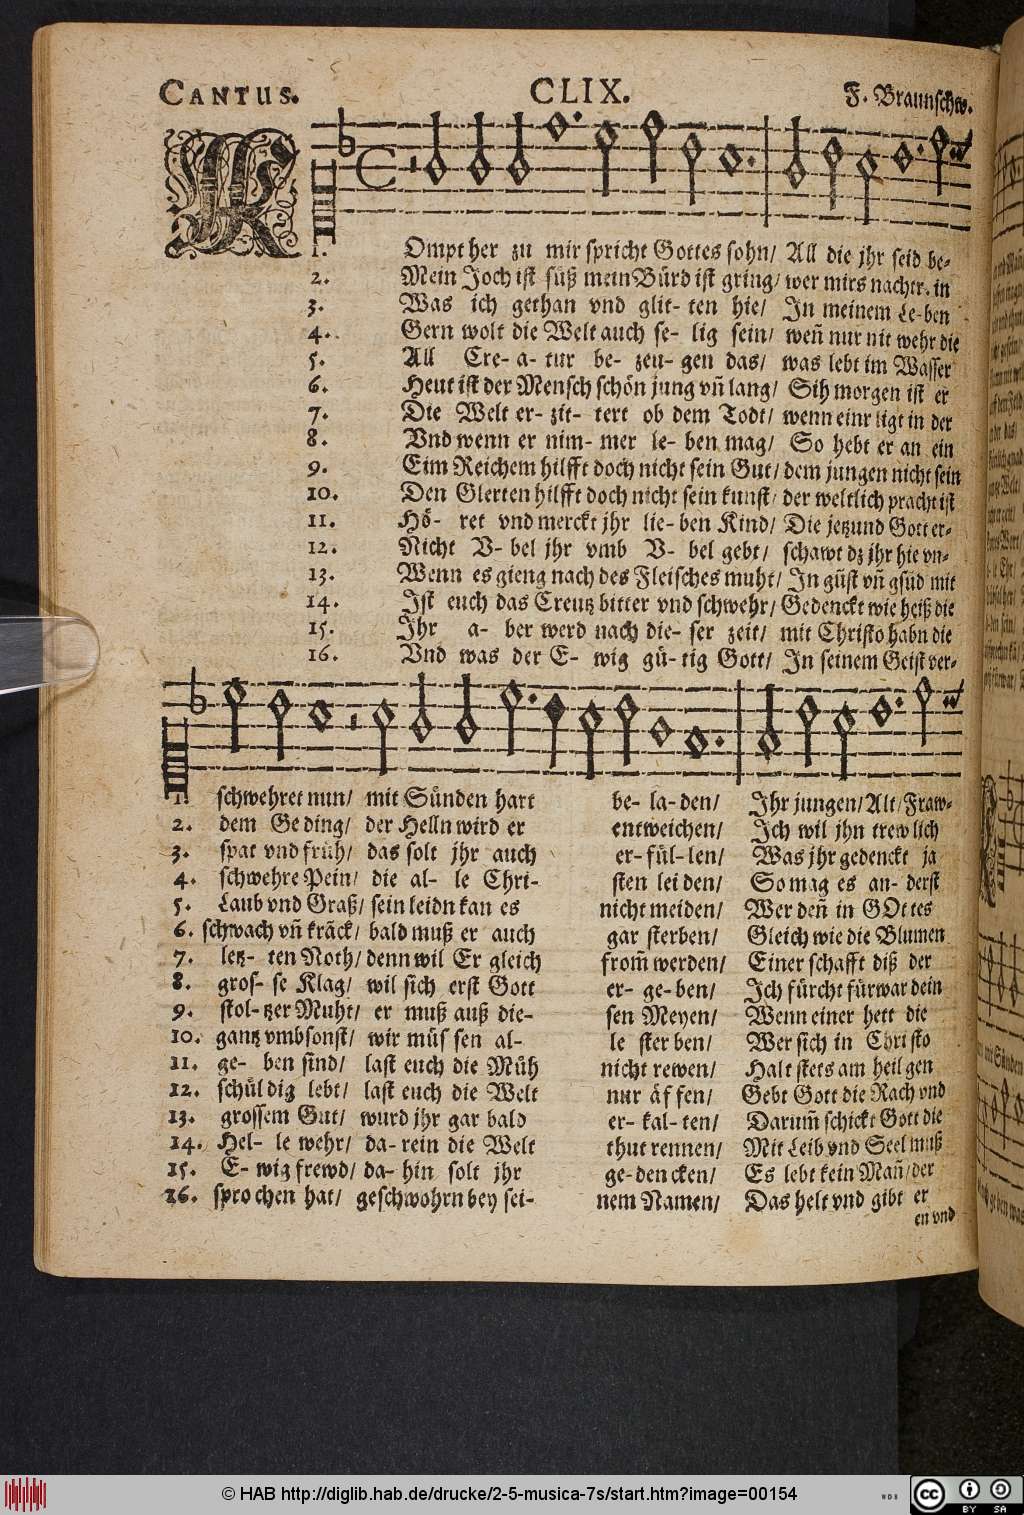 CANTUS.
CLIX.
F. Braunschw.
K
1. Ompt her zu mir spricht Gottes sohn/ All die jhr seid be-
2. Mein Joch ist süß mein Bürd ist gring/ wer mirs nachtr. in
3. Was ich gethan vnd glit- ten hie/ In meinem Le-ben
4. Gern wolt die Welt auch se- lig sein/ weñ nur nit wehr die
5. All Cre- a- tur be- zeu- gen das/ was lebt im Wasser
6. Heut ist der Mensch schön jung vñ lang/ Sih morgen ist er
7. Die Welt er- zit- tert ob dem Todt/ wenn einr ligt in der
8. Vnd wenn er nim- mer le- ben mag/ So hebt er an ein
9. Eim Reichem hilfft doch nicht sein Gut/ dem jungen nicht sein
10. Den Glerten hilfft doch nicht sein kunst/ der weltlich pracht ist
11. Hö- ret vnd merckt jhr lie- ben Kind/ Die jetzund Gott er-
12. Nicht V- bel jhr vmb V- bel gebt/ schawt dz jhr hie vn-
13. Wenn es gieng nach des Fleisches muht/ In gũst vñ gsũd mit
14. Ist euch das Creutz bitter vnd schwehr/ Gedenckt wie heiß die
15. Ihr a- ber werd nach die- ser zeit/ mit Christo habn die
16. Vnd was der E- wig gü- tig Gott/ In seinem Geist ver-
1. schwehret nun/ mit Sünden hart be- la- den/ Ihr jungen/ Alt/ Fraw-
2. dem Ge ding/ der Helln wird er entweichen/ Ich wil jhn trewlich
3. spat vnd früh/ das solt jhr auch er- fül- len/ Was jhr gedenckt ja
4. schwehre Pein/ die al- le Chri- sten lei den/ So mag es an- derst
5. Laub vnd Graß/ sein leidn kan es nicht meiden/ Wer deñ in GOttes
6. schwach vñ kräck/ bald muß er auch gar sterben/ Gleich wie die Blumen
7. letz- ten Noth/ denn wil Er gleich from̃ werden/ Einer schafft diß der
8. gros- se Klag/ wil sich erst Gott er- ge- ben/ Ich fürcht fürwar dein
9. stol- tzer Muht/ er muß auß die- sen Meyen/ Wenn einer hett die
10. gantz vmbsonst/ wir müs sen al- le ster ben/ Wer sich in Christo
11. ge- ben sind/ last euch die Müh nicht rewen/ Halt stets am heilgen
12. schüldig lebt/ last euch die Welt nur äf fen/ Gebt Gott die Rach vnd
13. grossem Gut/ wurd jhr gar bald er- kal- ten/ Darum̃ schickt Gott die
14. Hel- le wehr/ da- rein die Welt thut rennen/ Mit Leib vnd Seel muß
15. E- wig frewd/ da- hin solt jhr ge- den cken/ Es lebt kein Mañ/ der
16. sprochen hat/ geschwohrn bey sei- nem Namen/ Das helt vnd gibt er
en vnd
© HAB http://diglib.hab.de/drucke/2-5-musica-7s/start.htm?image=00154
WDB
cc BY SA